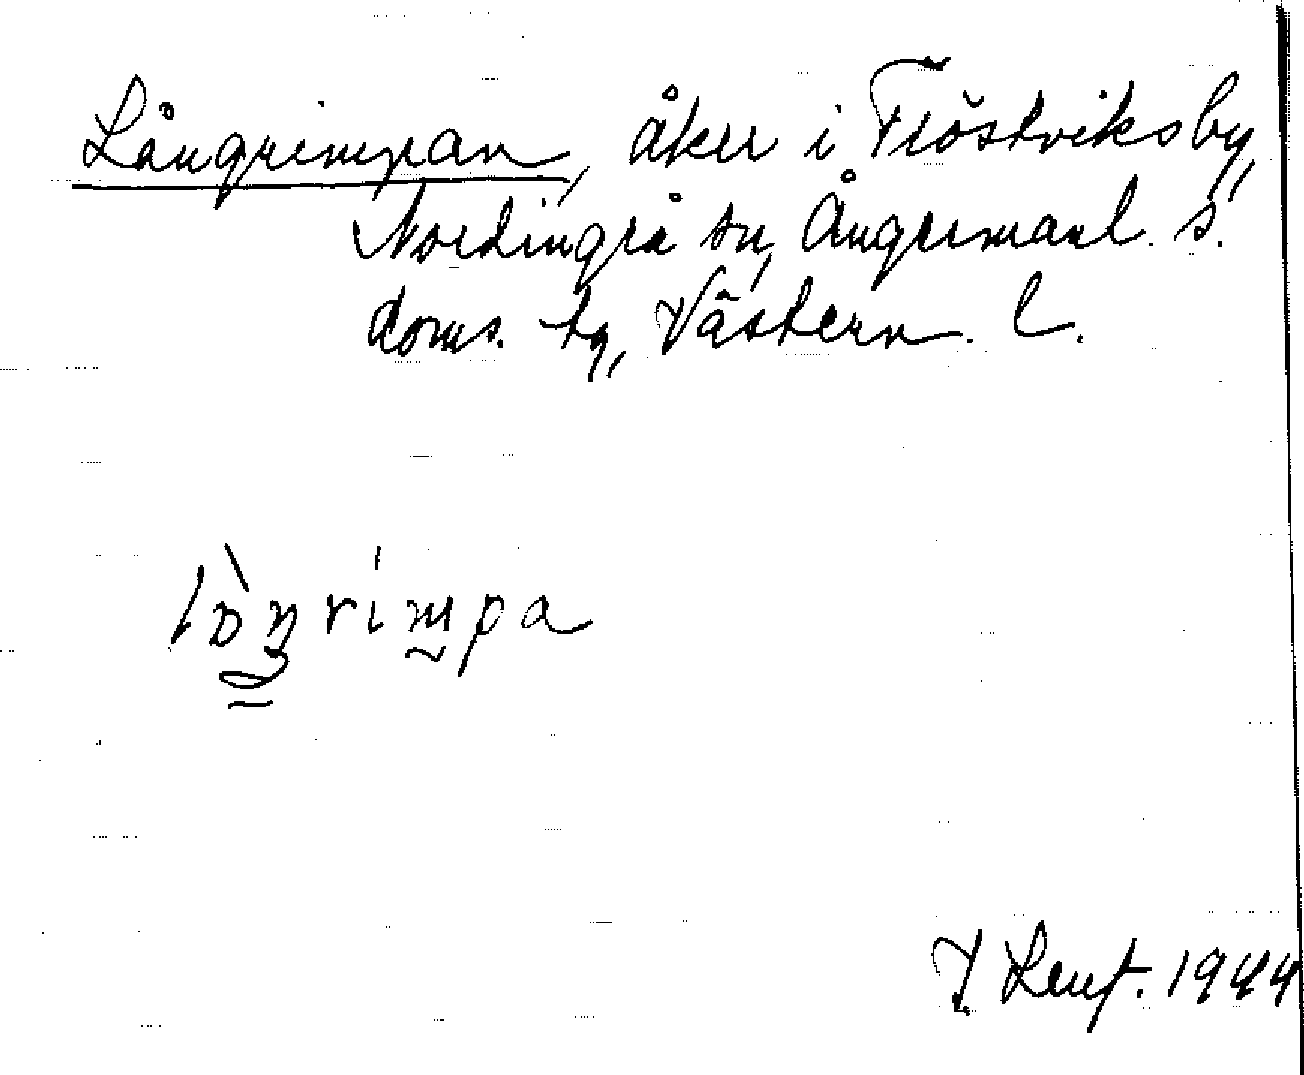 Långrimpan, åker i Fröstviks by,
Nordingrå sn, Ångermanl. s.
doms. tg, Västern. l.
lòŋrimpa
Y. Lenf. 1944